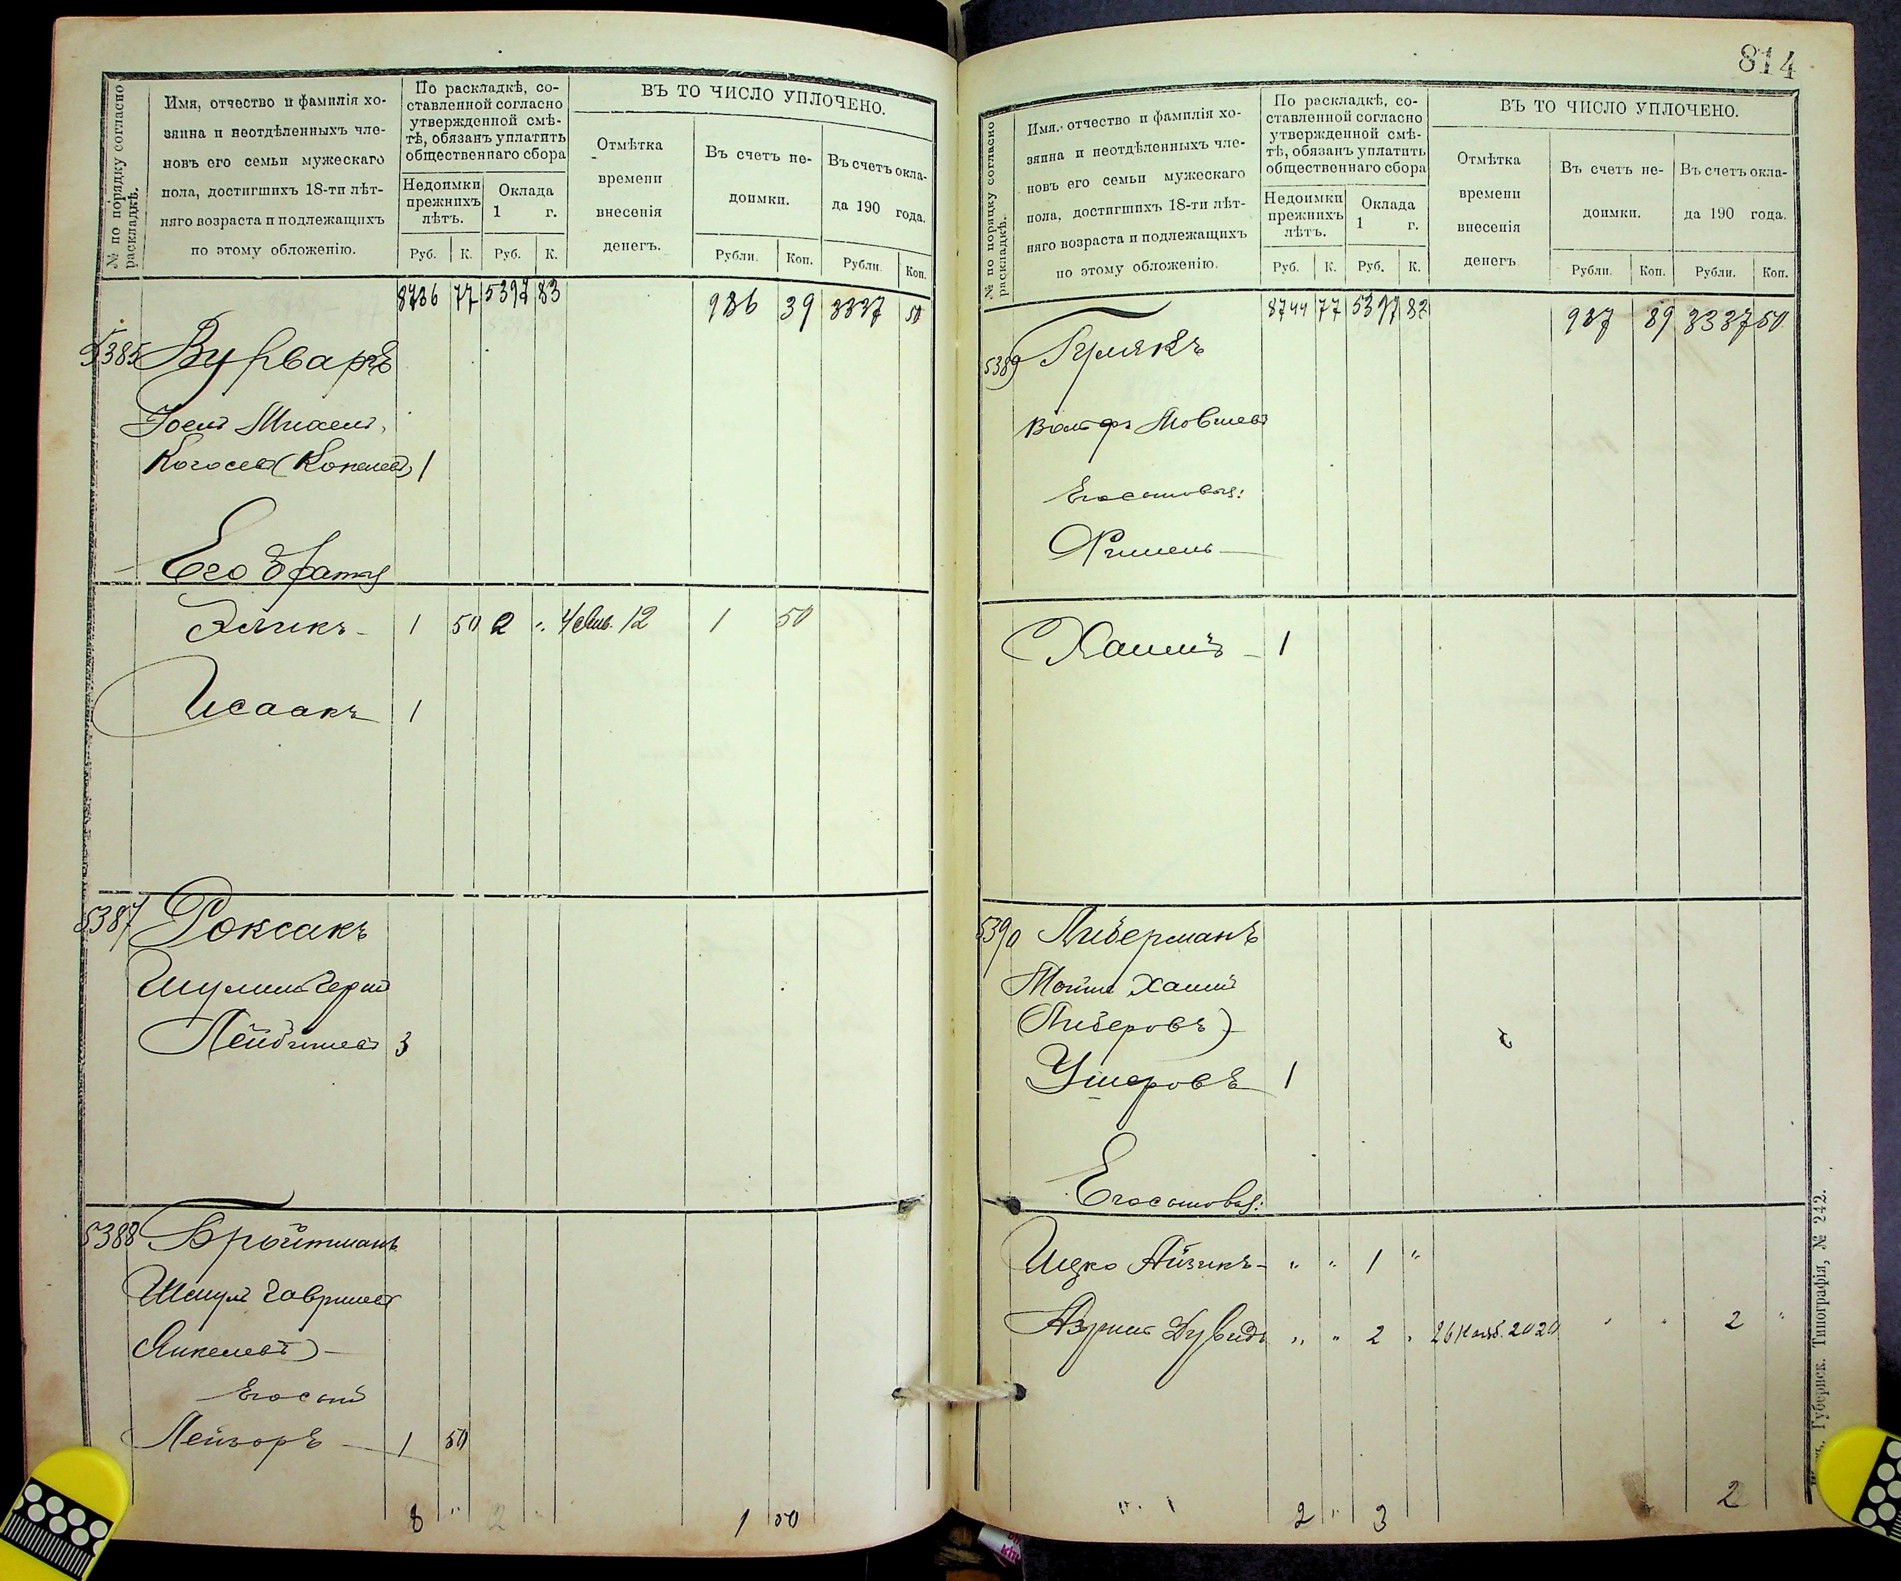 № по порядку согласно раскладкѣ.
Имя, отчество и фамилія хо-
зяина и неотдѣленныхъ чле-
новъ его семьи мужескаго
пола, достигшихъ 18-ти лѣт-
няго возраста и подлежащихъ
по этому обложенію.
По раскладкѣ, со-
ставленной согласно
утвержденной смѣ-
тѣ, обязанъ уплатить
общественнаго сбора
Недоимки
прежнихъ
лѣтъ.
Оклада
1 г.
Руб. К. Руб. К.
ВЪ ТО ЧИСЛО УПЛОЧЕНО.
Отмѣтка
времени
внесенія
денегъ.
Въ счетъ не-
доимки.
Въ счетъ окла-
да 190 года.
Рубли. Коп. Рубли. Коп.
8736 77 5397 83 986 39 3337 50
5385 Вурваръ
Іосел Михел
1
Его братья
Эликъ 1 50 2 " 12 1 50
Исаакъ 1
5387 Роксакъ
Шулим Герш
3
5388 Бройтманъ
Шмул Гавришев
(Янкелевъ)
Его сын
Лейзоръ 1 50
8 " 2 " 1 50
814
№ по порядку согласно раскладкѣ.
Имя, отчество и фамилія хо-
зяина и неотдѣленныхъ чле-
новъ его семьи мужескаго
пола, достигшихъ 18-ти лѣт-
няго возраста и подлежащихъ
по этому обложенію.
По раскладкѣ, со-
ставленной согласно
утвержденной смѣ-
тѣ, обязанъ уплатить
общественнаго сбора
Недоимки
прежнихъ
лѣтъ.
Оклада
1 г.
Руб. К. Руб. К.
ВЪ ТО ЧИСЛО УПЛОЧЕНО.
Отмѣтка
времени
внесенія
денегъ
Въ счетъ не-
доимки.
Въ счетъ окла-
да 190 года.
Рубли. Коп. Рубли. Коп.
8744 77 5397 83 987 89 3337 50
5389
Вольфъ Мовшев
Его сыновья:
Хаимъ 1
5390 Либерманъ
Мойше Хаим
(Либеровъ)
Ушеровъ 1
Его сыновья:
Ицко Айзикъ " " 1 "
Азриль Дувидъ " " 2 " 26 Нояб. 2020 " " 2 "
2 " 3 2
Губернск. Типографія, № 242.